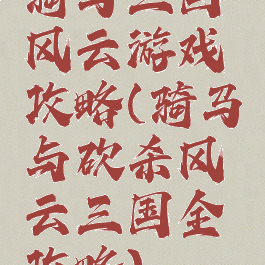 骑马三国
风云游戏
攻略(骑马
与砍杀风
云三国全
攻略)